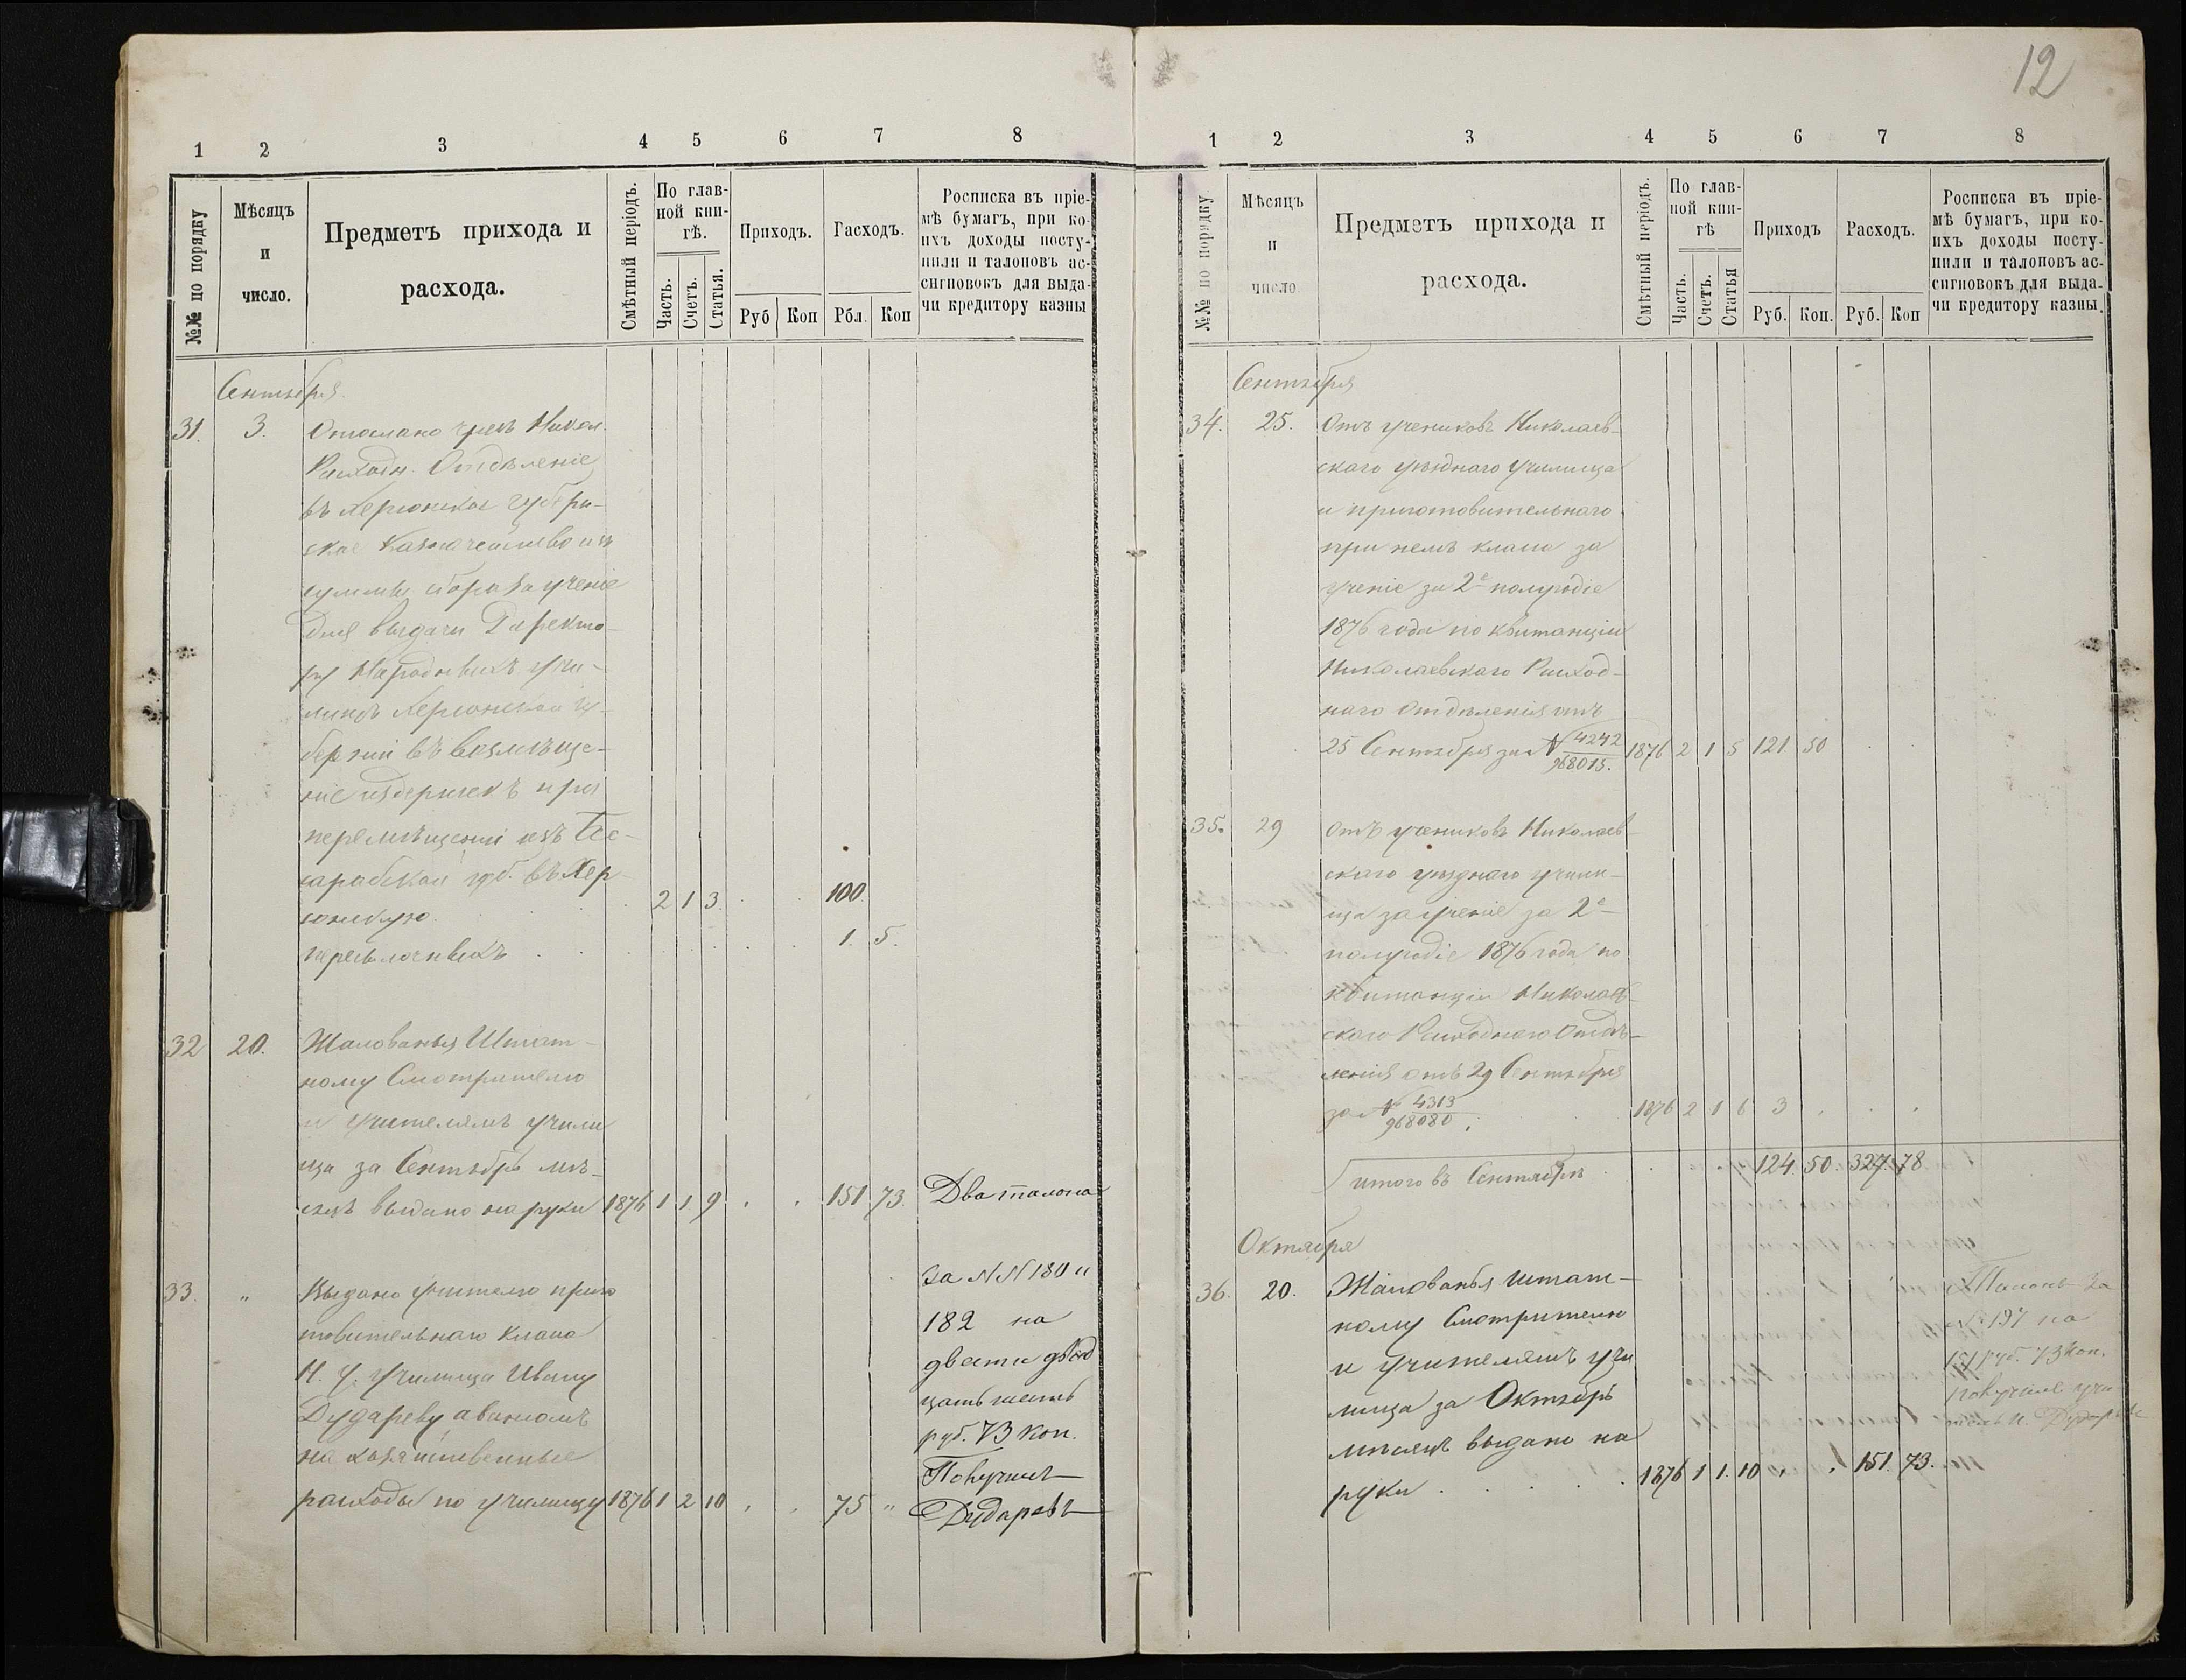 12
1 2 3 4 5 6 7 8
№№ по порядку
Мѣсяцъ и число.
Предметъ прихода и расхода.
Смѣтный періодъ.
По глав-
ной кни-
гѣ.
Часть. Счетъ. Статья.
Приходъ.
Расходъ.
Руб Коп Рбл. Коп
Росписка въ пріе-
мѣ бумагъ, при ко-
ихъ доходы посту-
пили и талоновъ ас-
сигновокъ для выда-
чи кредитору казны
Сентября
31. 3. Отослано чрезъ Никол.
Расходн. Отдѣленіе
въ Херсонское Губерн-
ское Казначейство изъ
суммы сбора за ученіе
для выдачи Директо-
ру Народныхъ Учи-
лищъ Херсонской Гу-
берніи въ возмѣще-
ніе издержекъ при
перемѣщеніи изъ Бес-
сарабской губ. въ Хер-
сонскую. 2 1 3 100.
пересылочныхъ 1. 5.
32 20. Жалованья Штат-
ному Смотрителю
и Учителямъ Учили
ща за Сентябрь мѣ-
сяцъ выдано на руки 1876 1 1 9 151 73. Два талона
за №№ 180 и
33. " Выдано учителю приго
товительнаго класса 182 на
Н. У. Училища Ивану двѣсти двад
Дудареву авансомъ цать шесть
на хозяйственные руб. 73 коп.
Получилъ
расходы по училищу 1876 1 2 10 75 " Дударевъ
1 2 3 4 5 6 7 8
№№ по порядку
Мѣсяцъ и число
Предметъ прихода и расхода.
Смѣтный періодъ.
По глав-
ной кни-
гѣ
Часть. Счетъ. Статья
Приходъ
Расходъ.
Руб. Коп. Руб. Коп
Росписка въ пріе-
мѣ бумагъ, при ко-
ихъ доходы посту-
пили и талоновъ ас-
сигновокъ для выда-
чи кредитору казны.
Сентября
34. 25. Отъ учениковъ Николаев-
скаго уѣзднаго училища
и приготовительнаго
при немъ класса за
ученіе за 2е полугодіе
1876 года по квитанціи
Николаевскаго Расход-
наго Отдѣленія отъ
25 Сентября за № 4242/968015. 1876 2 1 5 121 50
35. 29 Отъ учениковъ Николаев-
скаго уѣзднаго учили-
ща за ученіе за 2е
полугодіе 1876 года по
квитанціи Николаев-
скаго Расходнаго Отдѣ-
ленія отъ 29 Сентября
за № 4313/968080. 1876 2 1 6 3
итого въ Сентябрѣ 124. 50. 327. 78
Октября
36. 20. Жалованья штат-
ному Смотрителю
и Учителямъ учи
лища за Октябрь
мѣсяцъ выдано на
руки 1876 1 1. 10 151. 73.
Талонъ за
№ 197 на
151 руб. 73 коп.
получилъ учи-
тель И. Дударевъ